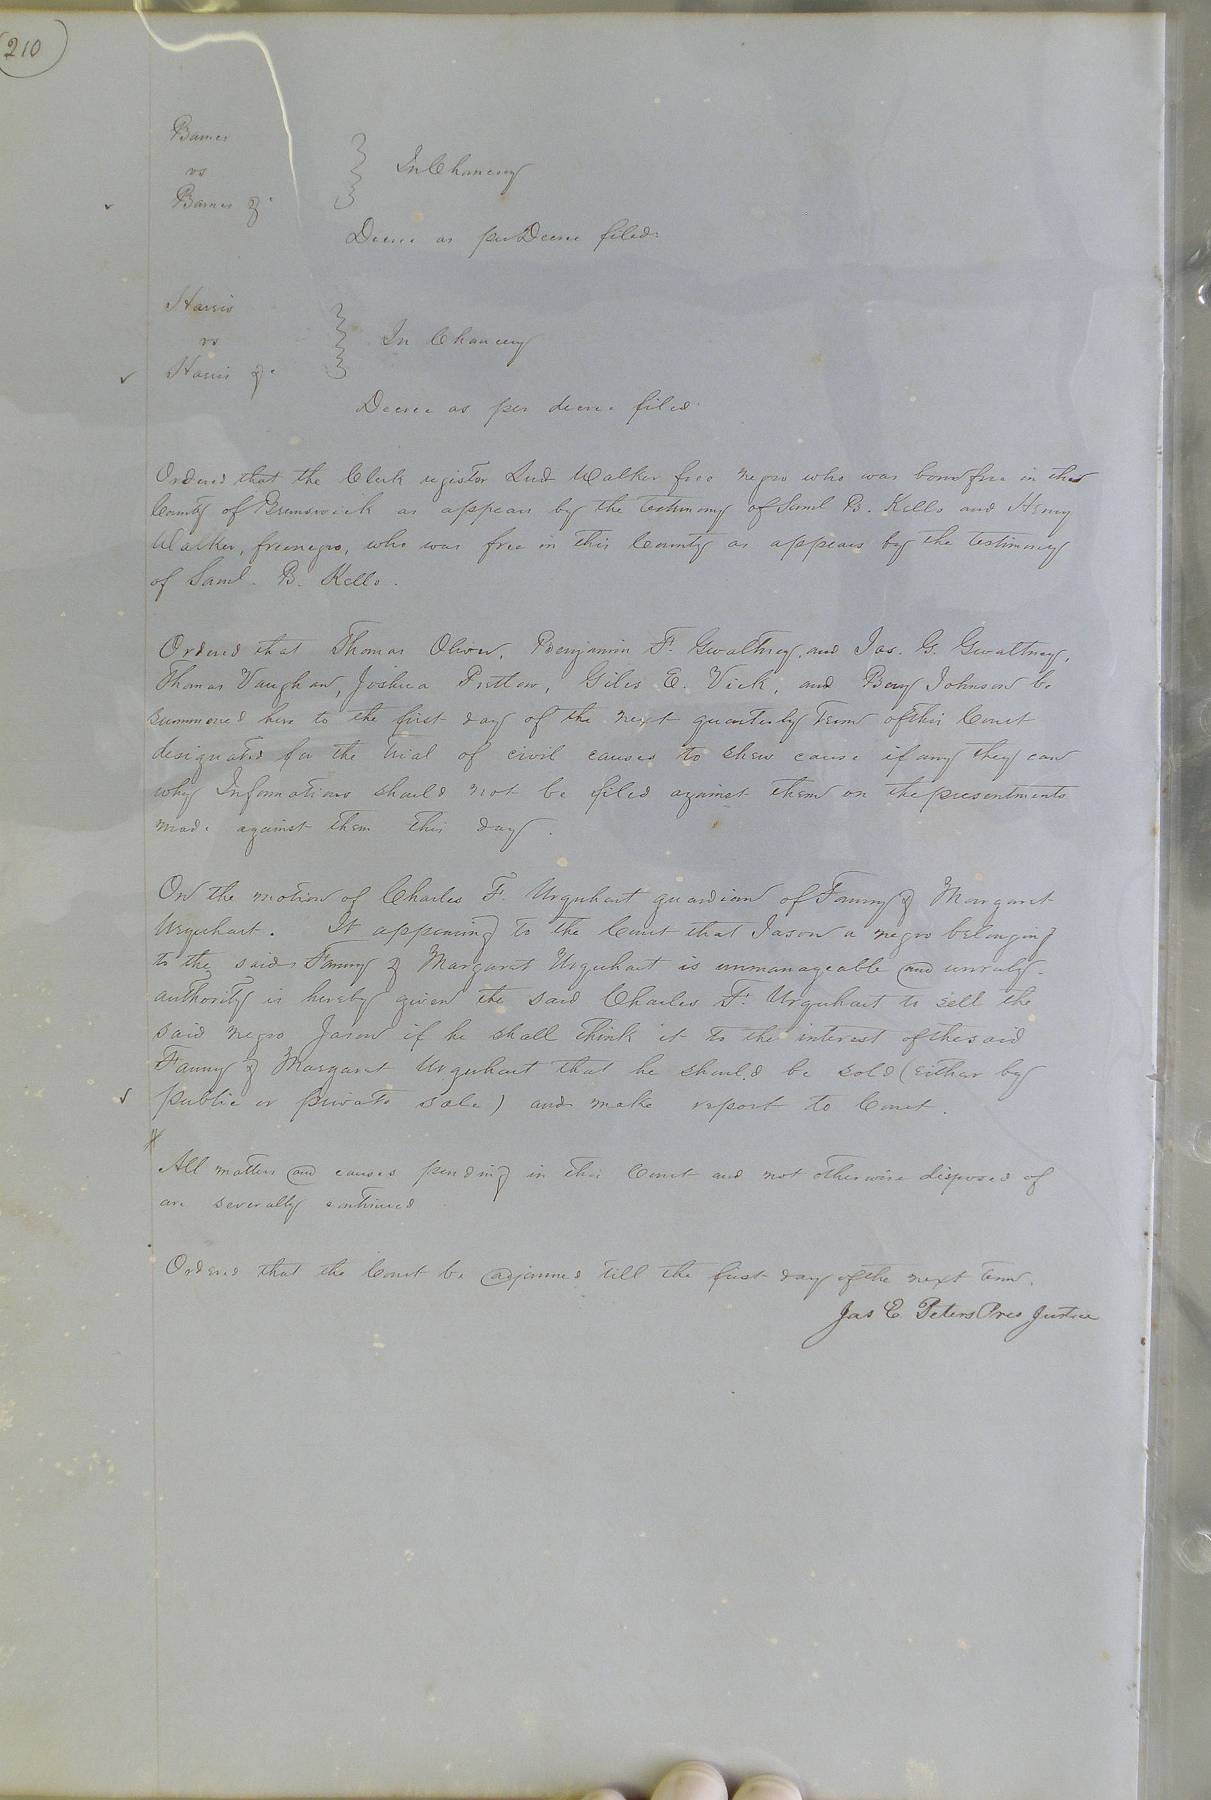 210
Barnes
vs
Barnes &c
In Chancery
Decree as per Decree filed.
Harris
vs
Harris &c
In Chancery
Decree as per decree filed.
Ordered that the Clerk register Walker free negro who was born free in the
County of Brunswick as appears by the testimony of Saml B. Kello and Henry
Walker, free negro, who was free in this County as appears by the testimony
of Saml. B. Kello.
Ordered that Thomas Oliver, Benjamin F. Gwaltney, and Jas. G. Gwaltney,
Thomas Vaughan, Joshua Pretlow, Giles E. Vick, and Benj Johnson be
summoned here to the first day of the next quarterly Term of this Court
designated for the trial of civil causes to shew cause if any they can
why Informations should not be filed against them on the presentments
made against them this day.
On the motion of Charles F. Urquhart guardian of Fanny & Margaret
Urquhart. It appearing to the Court that Jason a negro belonging
to the said Fanny & Margaret Urquhart is unmanageable and unruly.
authority is hereby given the said Charles F. Urquhart to sell the
said negro Jason if he shall think it to the interest of the said
Fanny & Margaret Urquhart that he should be sold (either by
public or private sale) and make report to Court.
All matters and causes pending in this Court and not otherwise disposed of
are severally continued
Ordered that the Court be adjourned till the first day of the next Term.
Jas E. Peters Pres Justice